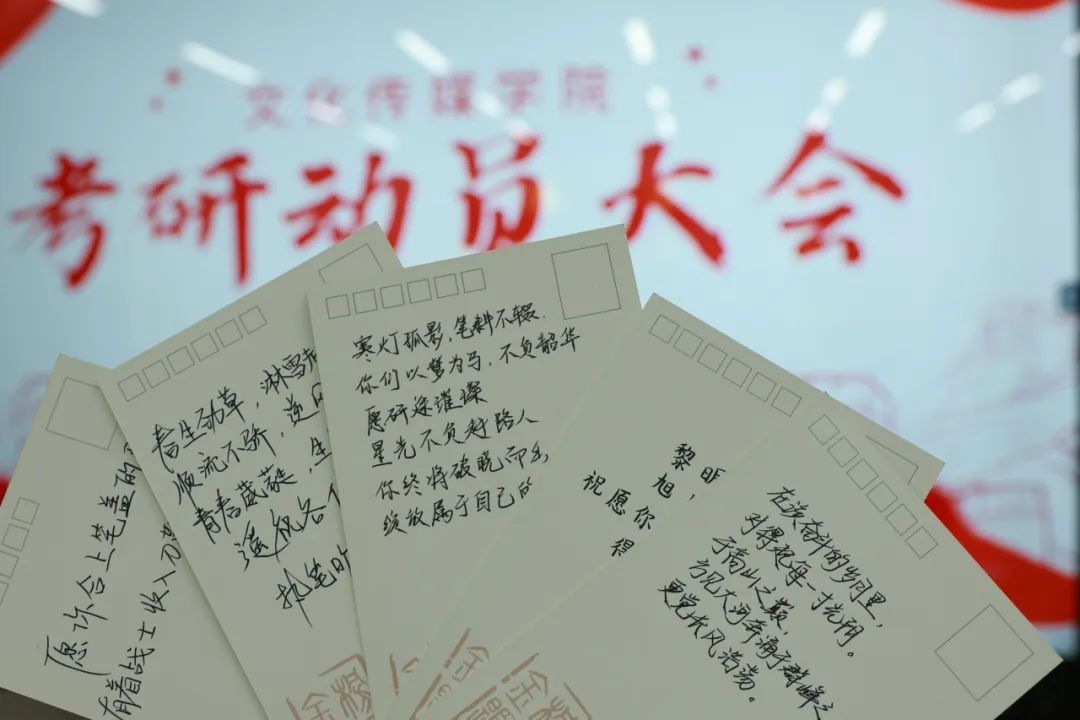 文化传媒学院
考研动员大会
愿你合上笔盖的
有着战士收入刀鞘
春生劲草，淋雪
顺流不骄，逆风
青春葳蕤，生
遥祝各
执笔时
寒灯孤影，笔耕不辍.
你们以梦为马，不负韶华
愿研途璀璨
星光不负赶路人
你终将破晓而出
绽放属于自己的
黎昕
旭，
祝愿你
得
在该奋斗的岁月里，
对得起每一寸光阴。
于高山之巅，
方见大河奔涌于群峰之
更觉长风浩荡。